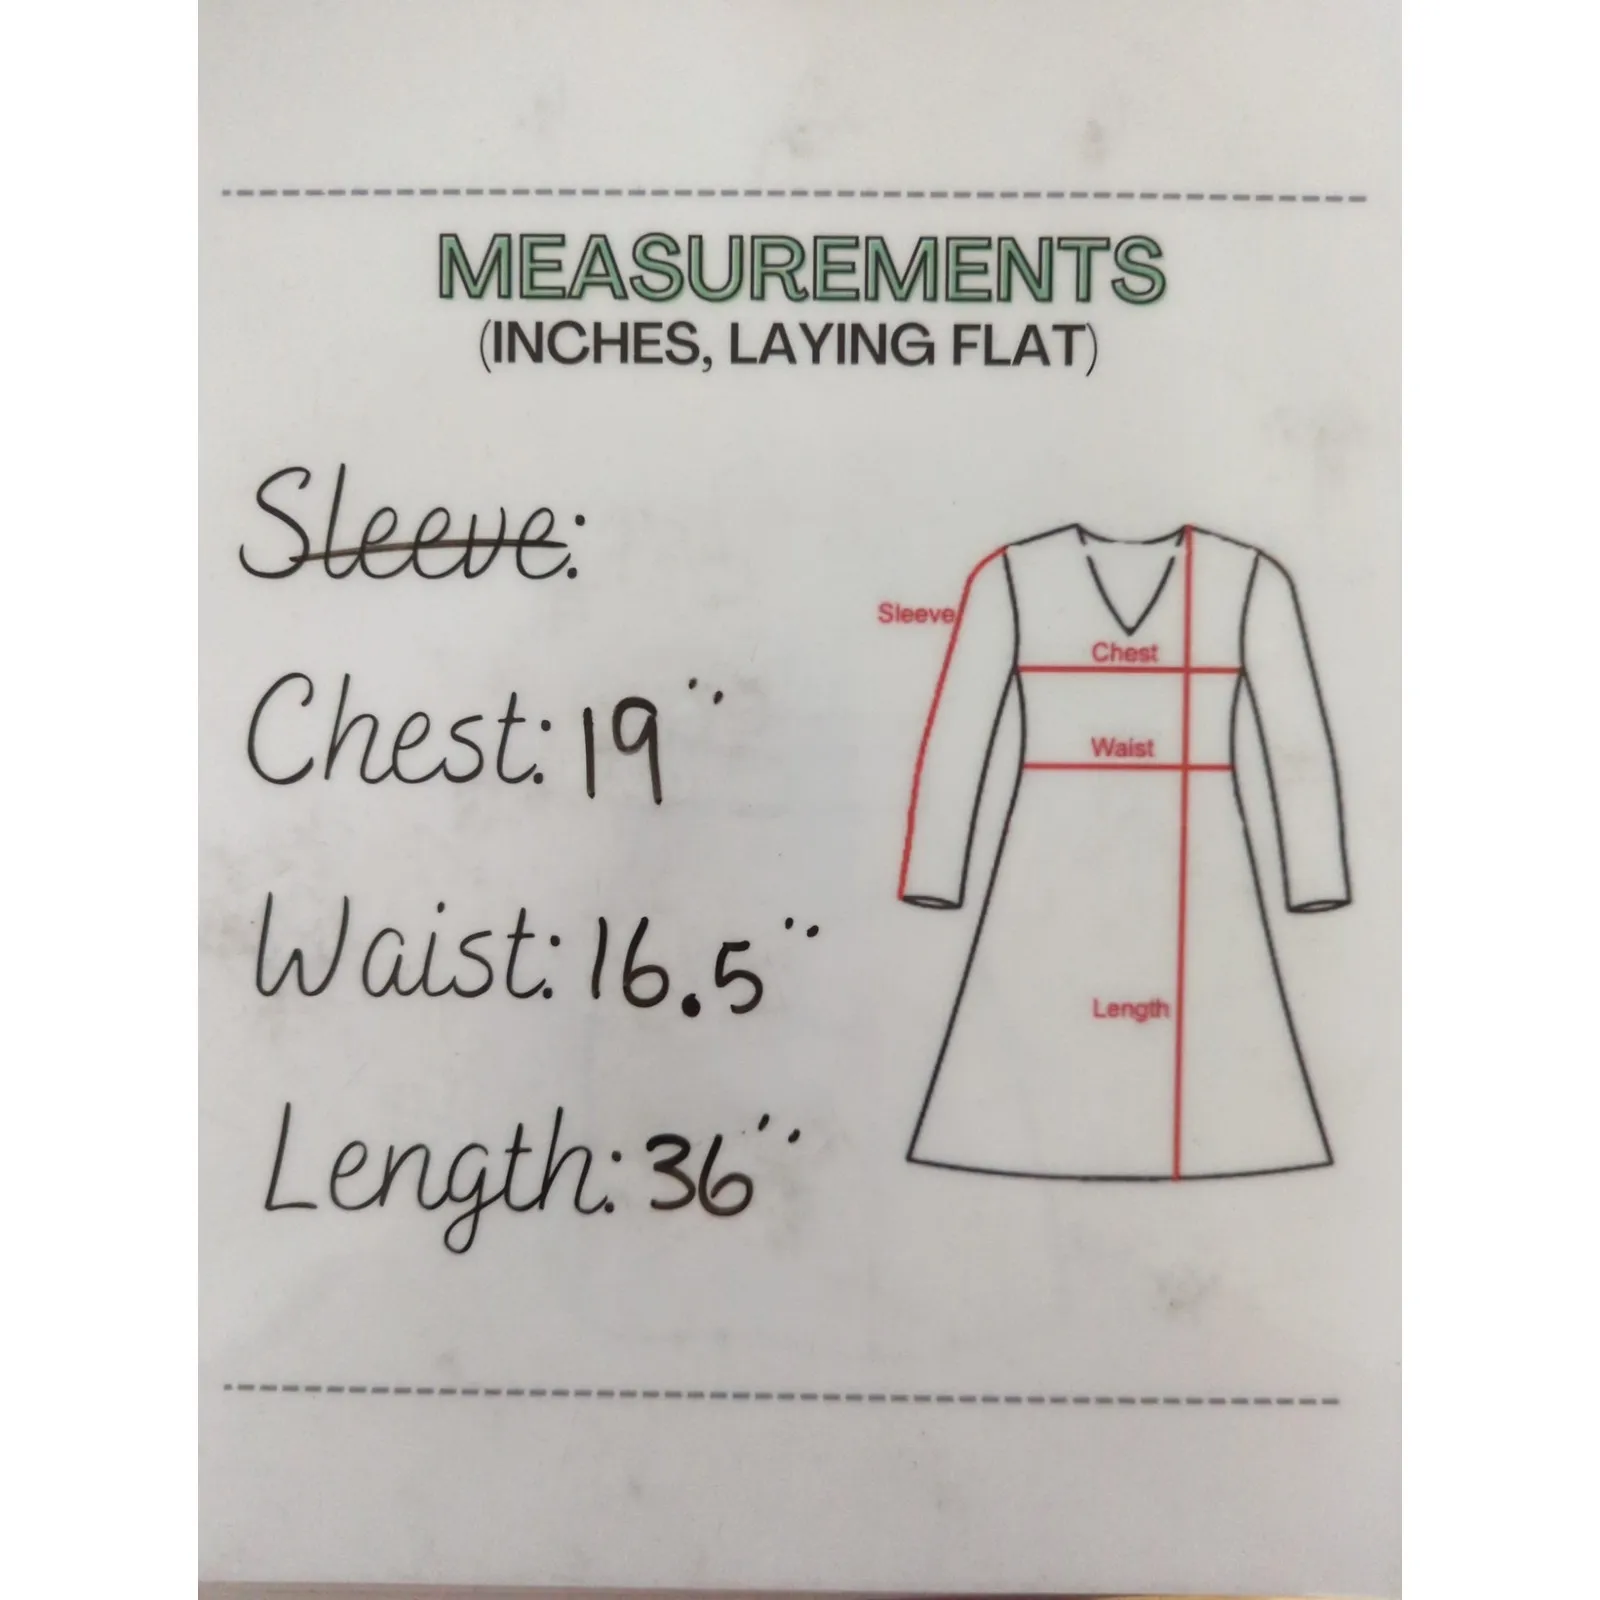 MEASUREMENTS
(INCHES, LAYING FLAT)
Sleeve:
Chest: 19"
Waist: 16.5"
Length: 36"
Sleeve
Chest
Waist
Length